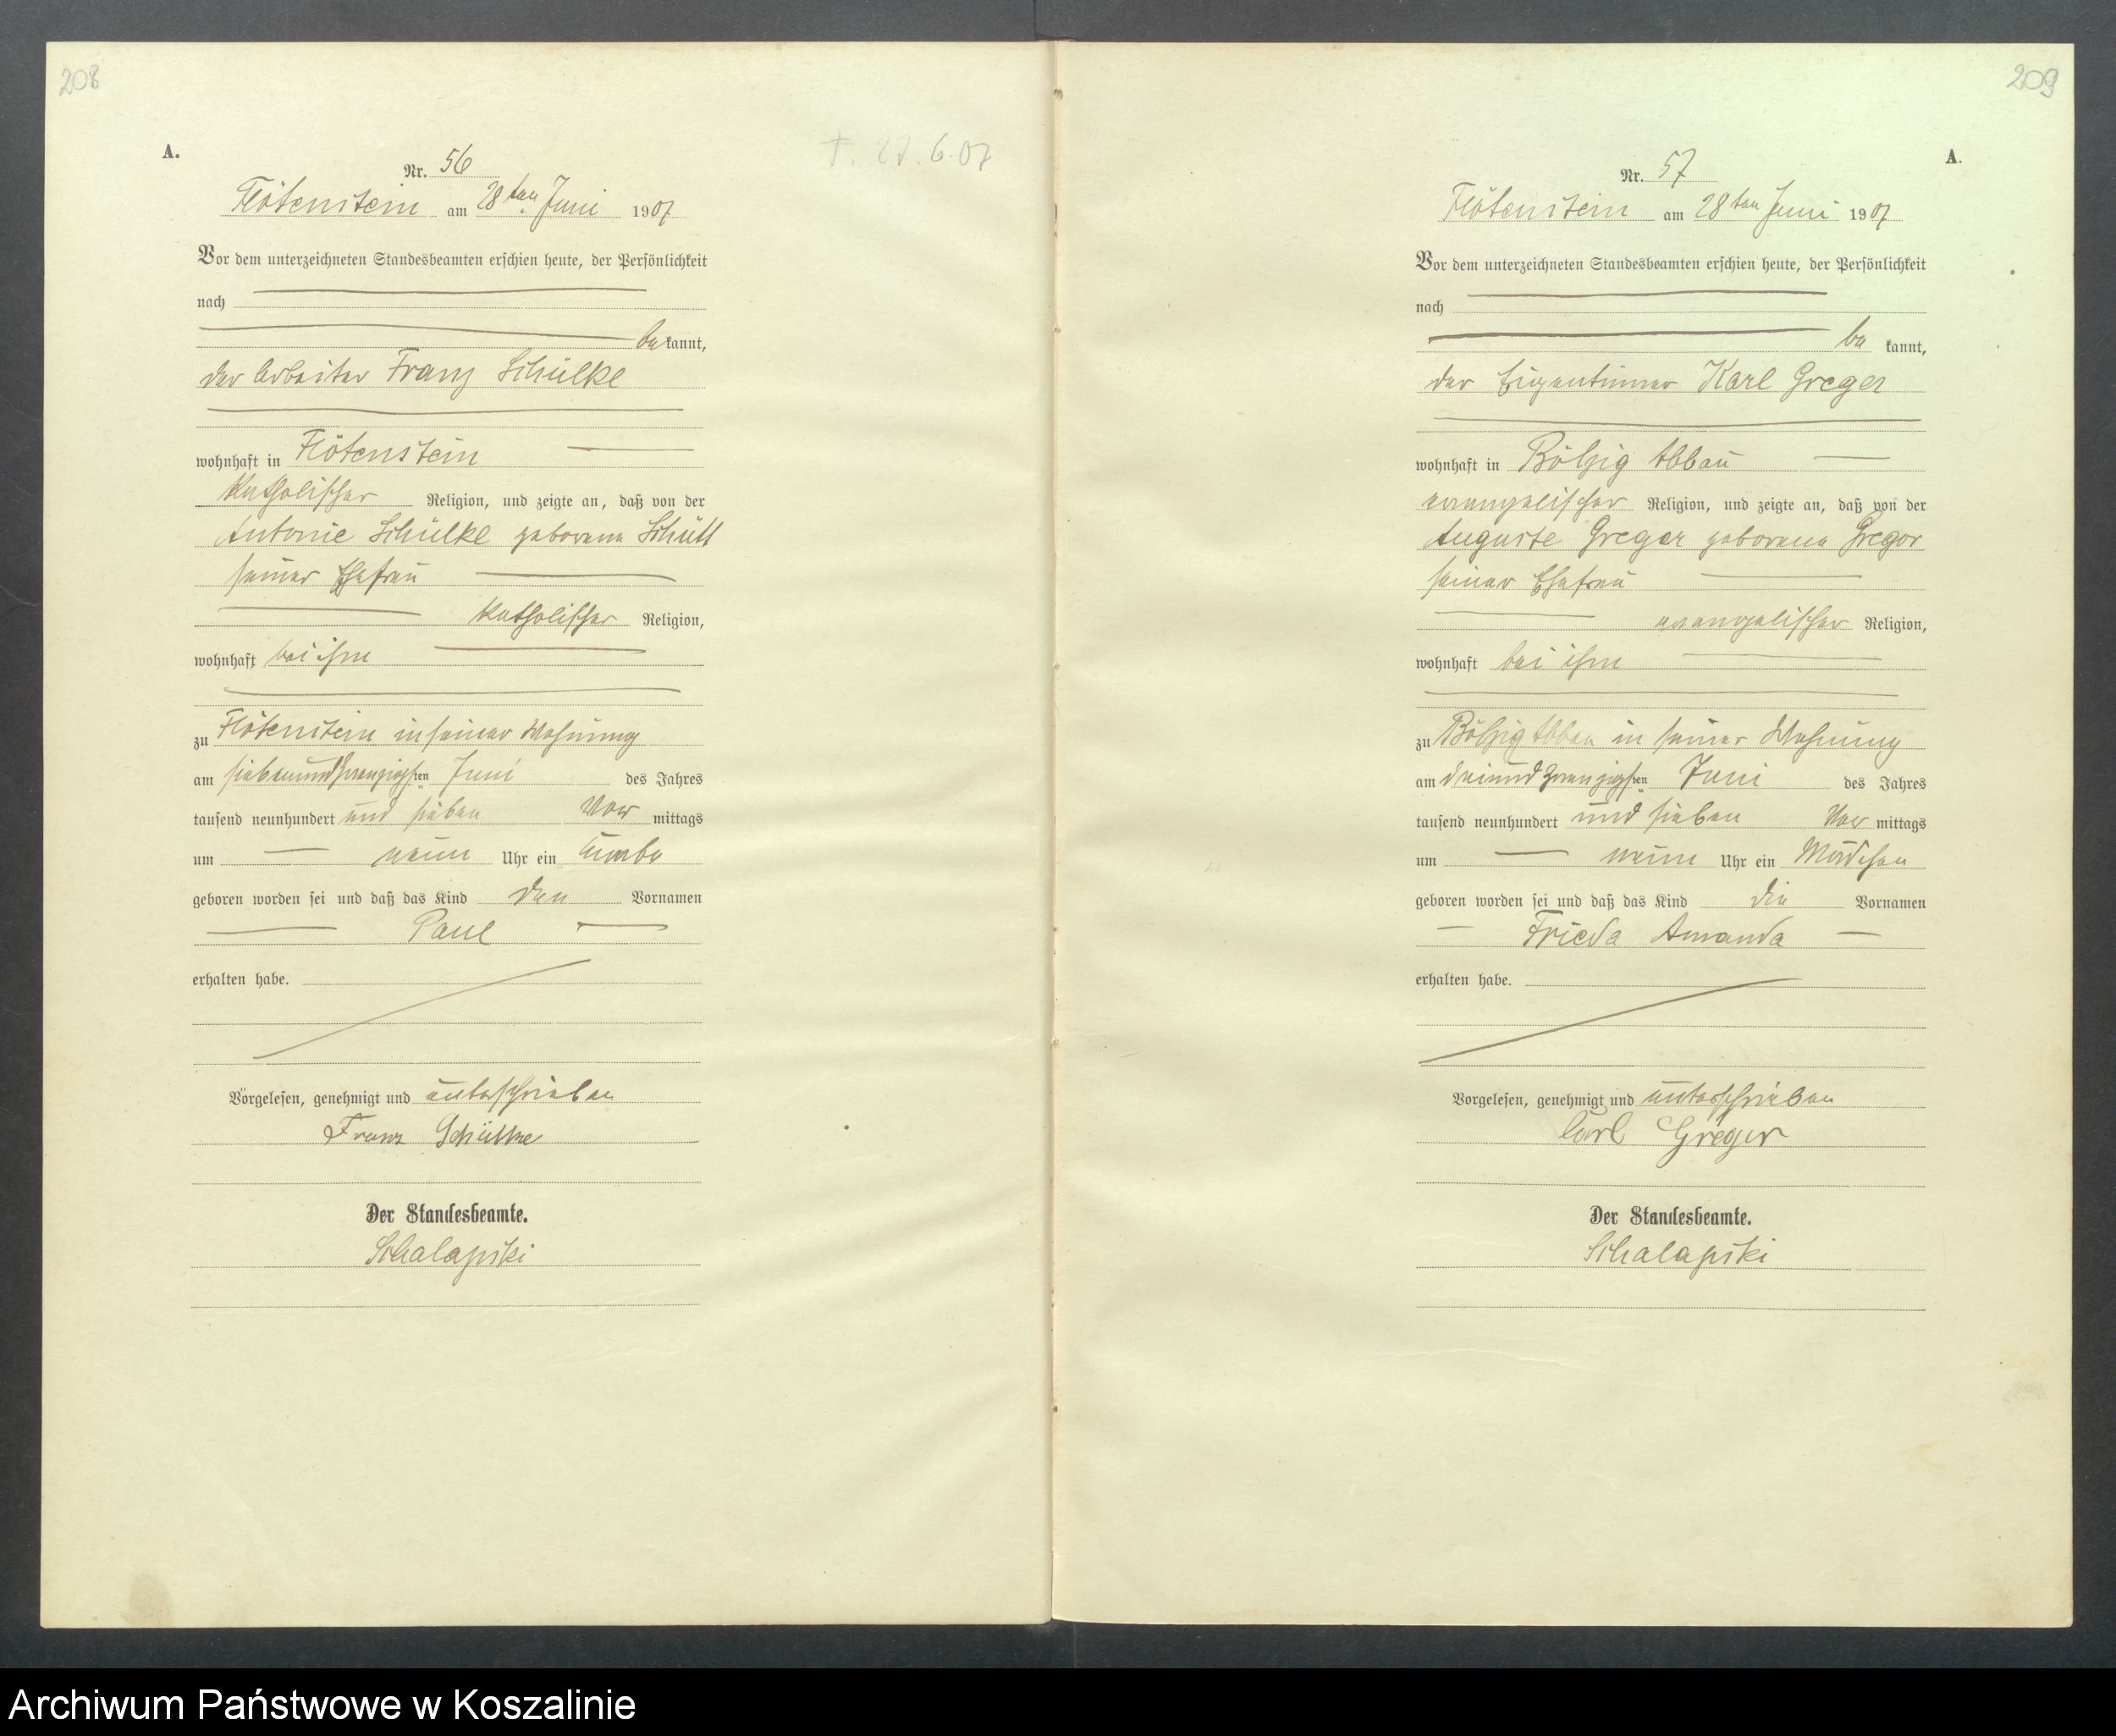 208
A.
6.07
Nr. 56
Flötenstein am 28ten Juni 1907
Vor dem unterzeichneten Standesbeamten erschien heute, der Persönlichkeit
nach
be kannt,
der Arbeiter Franz Schülke
wohnhaft in Flötenstein
katholischer Religion, und zeigte an, daß von der
Antonie Schülke geborene Schütt
seiner Ehefrau
katholischer Religion,
wohnhaft bei ihm
zu Flötenstein in seiner Wohnung
am siebenundzwanzigsten Juni des Jahres
tausend neunhundert und sieben Vor mittags
um neun Uhr ein Knabe
geboren worden sei und daß das Kind den Vornamen
Paul
erhalten habe.
Vorgelesen, genehmigt und unterschrieben
Franz Schülke
Der Standesbeamte.
Schalapski
209
A.
Nr. 57
Flötenstein am 28ten Juni 1907
Vor dem unterzeichneten Standesbeamten erschien heute, der Persönlichkeit
nach
be kannt,
der Eigentümer Karl Greger
wohnhaft in Bölzig Abbau
evangelischer Religion, und zeigte an, daß von der
Auguste Greger geborene Gregor
seiner Ehefrau
evangelischer Religion,
wohnhaft bei ihm
zu Bölzig Abbau in seiner Wohnung
am dreiundzwanzigsten Juni des Jahres
tausend neunhundert und sieben Vor mittags
um neun Uhr ein Mädchen
geboren worden sei und daß das Kind die Vornamen
Frieda Amanda
erhalten habe.
Vorgelesen, genehmigt und unterschrieben
Carl Greger
Der Standesbeamte.
Schalapski
Archiwum Państwowe w Koszalinie